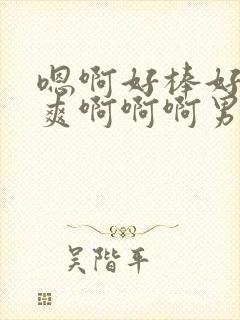 嗯啊好棒好
爽啊啊啊男
吴阶平